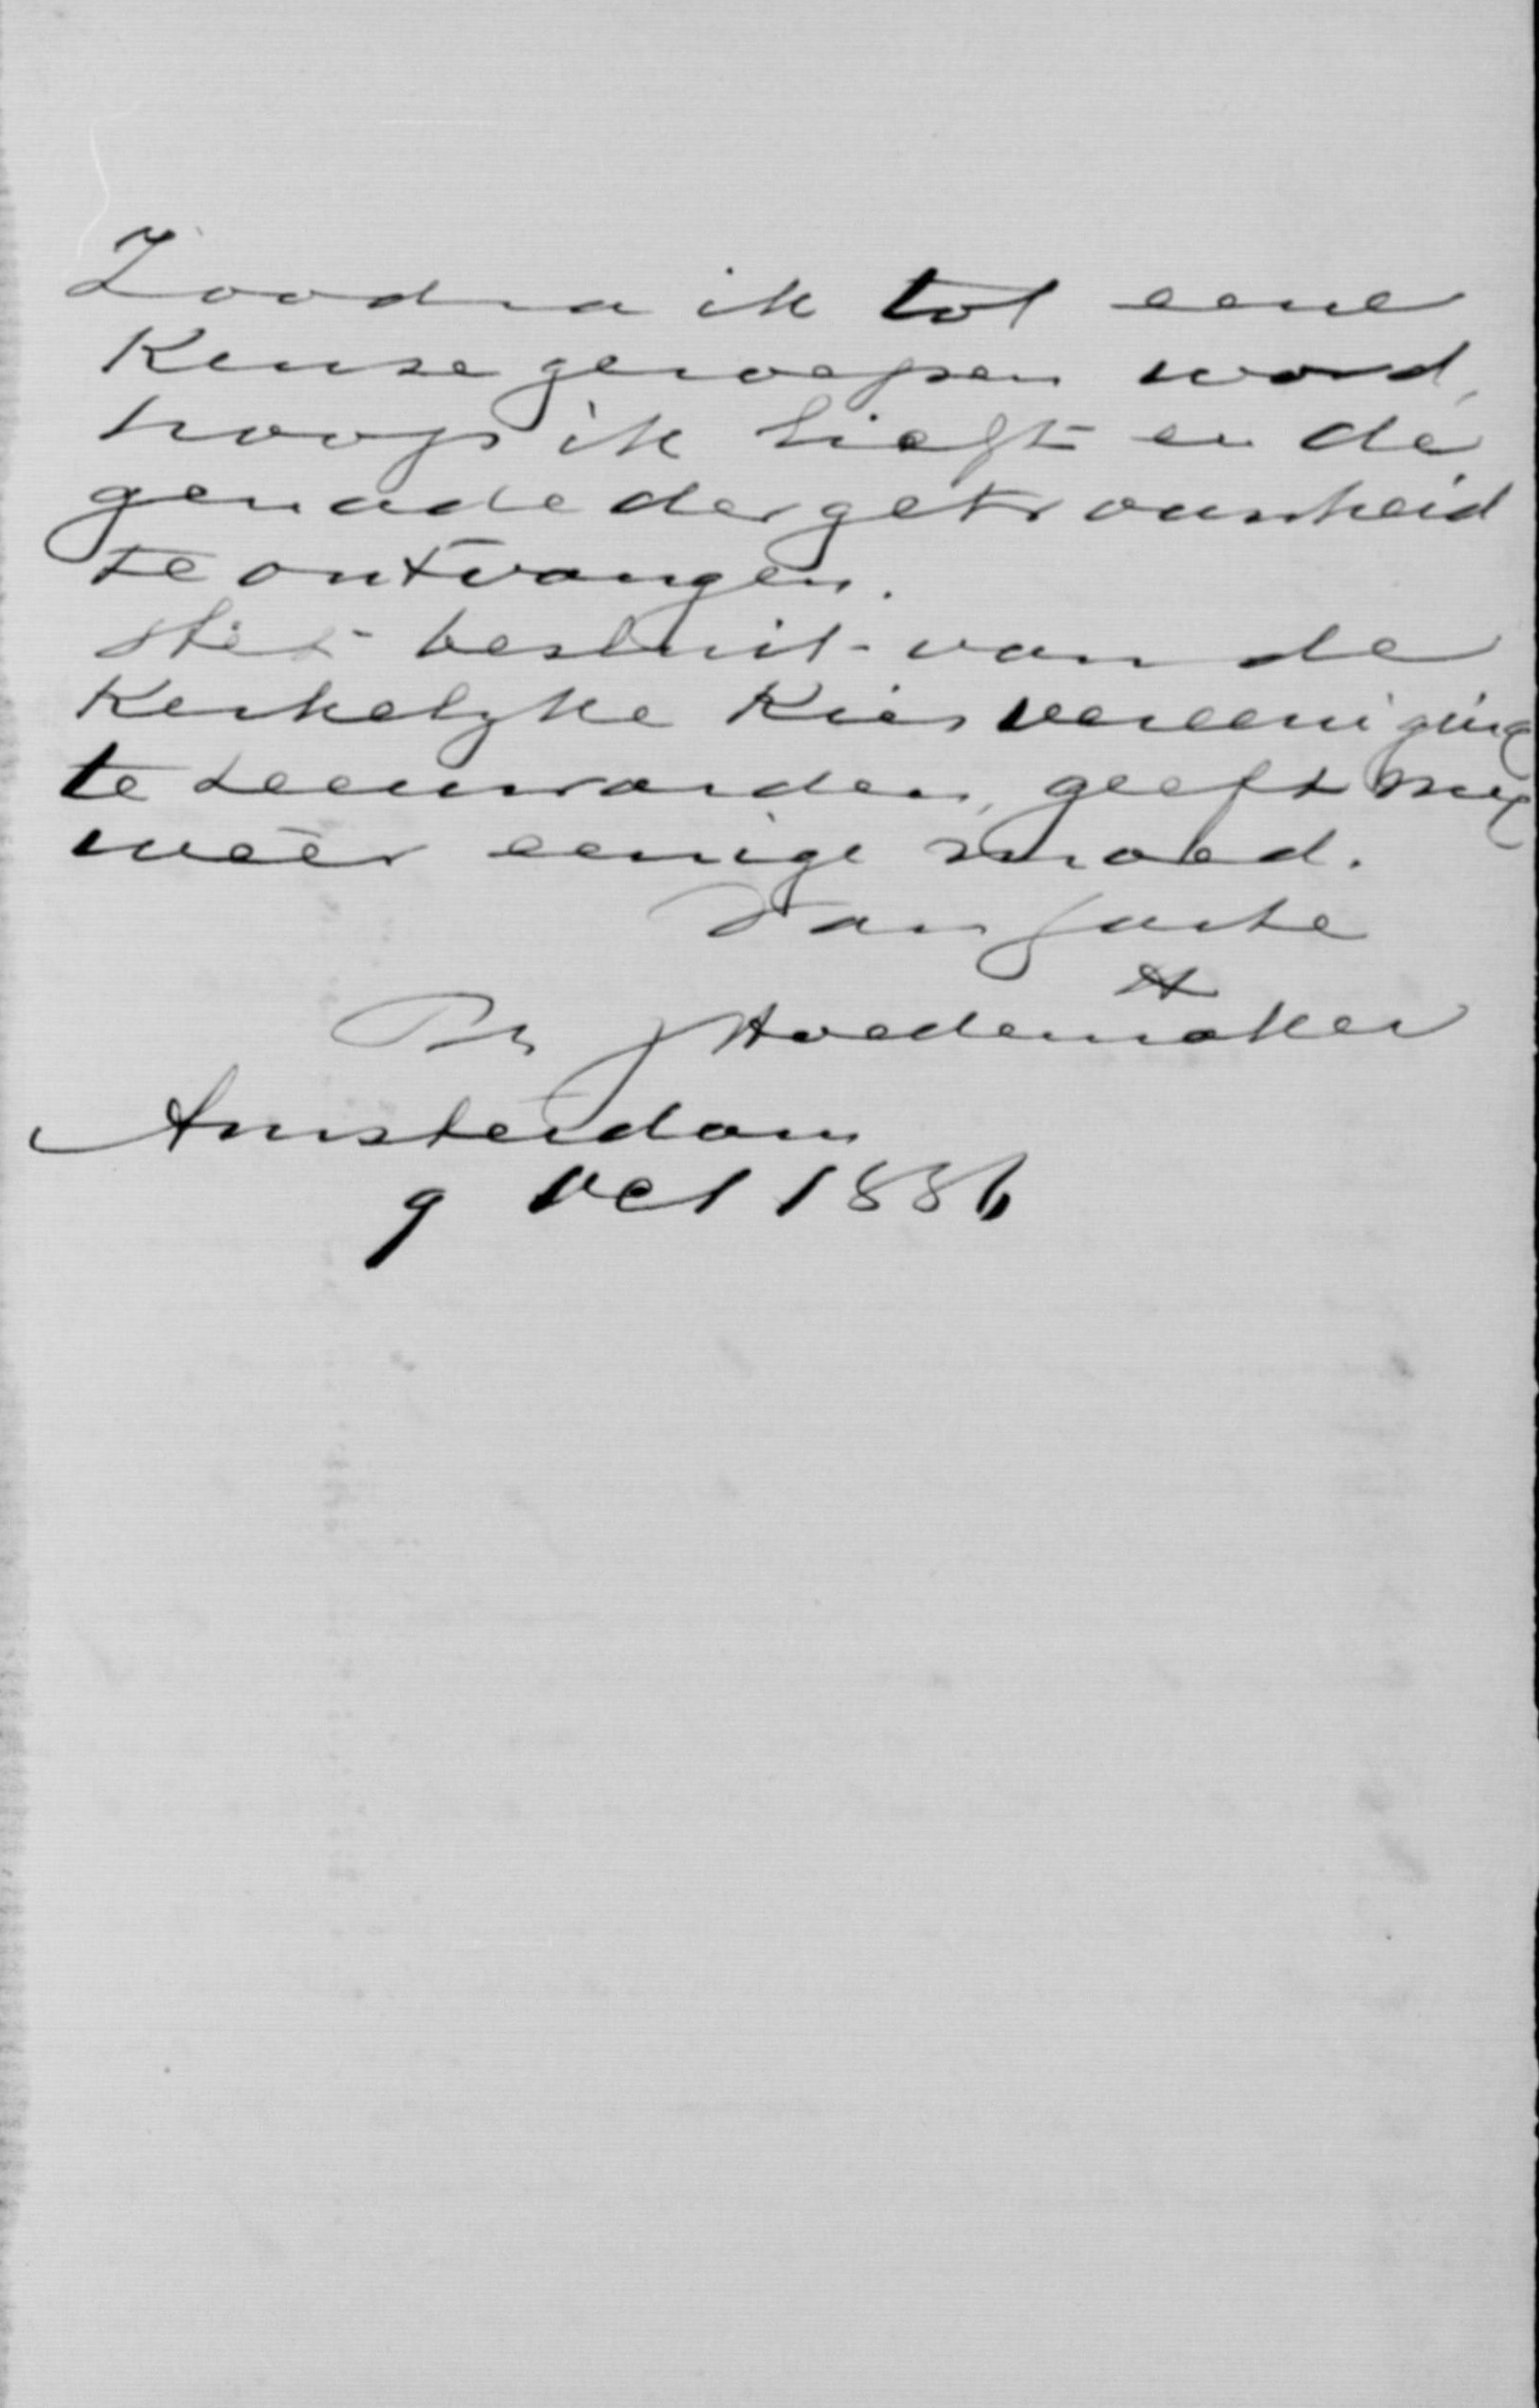 Zoodra ik tot eene
Keuze geroepen word,
hoop ik licht en de
genade der getrouwheid
te ontvangen.
Het besluit van de
Kerkelyke Kiesvereeniging
te Leeuwarden, geeft my
weêr eenige moed.
Van harte
Ph J Hoedemaker
Amsterdam
9 Oct 1886